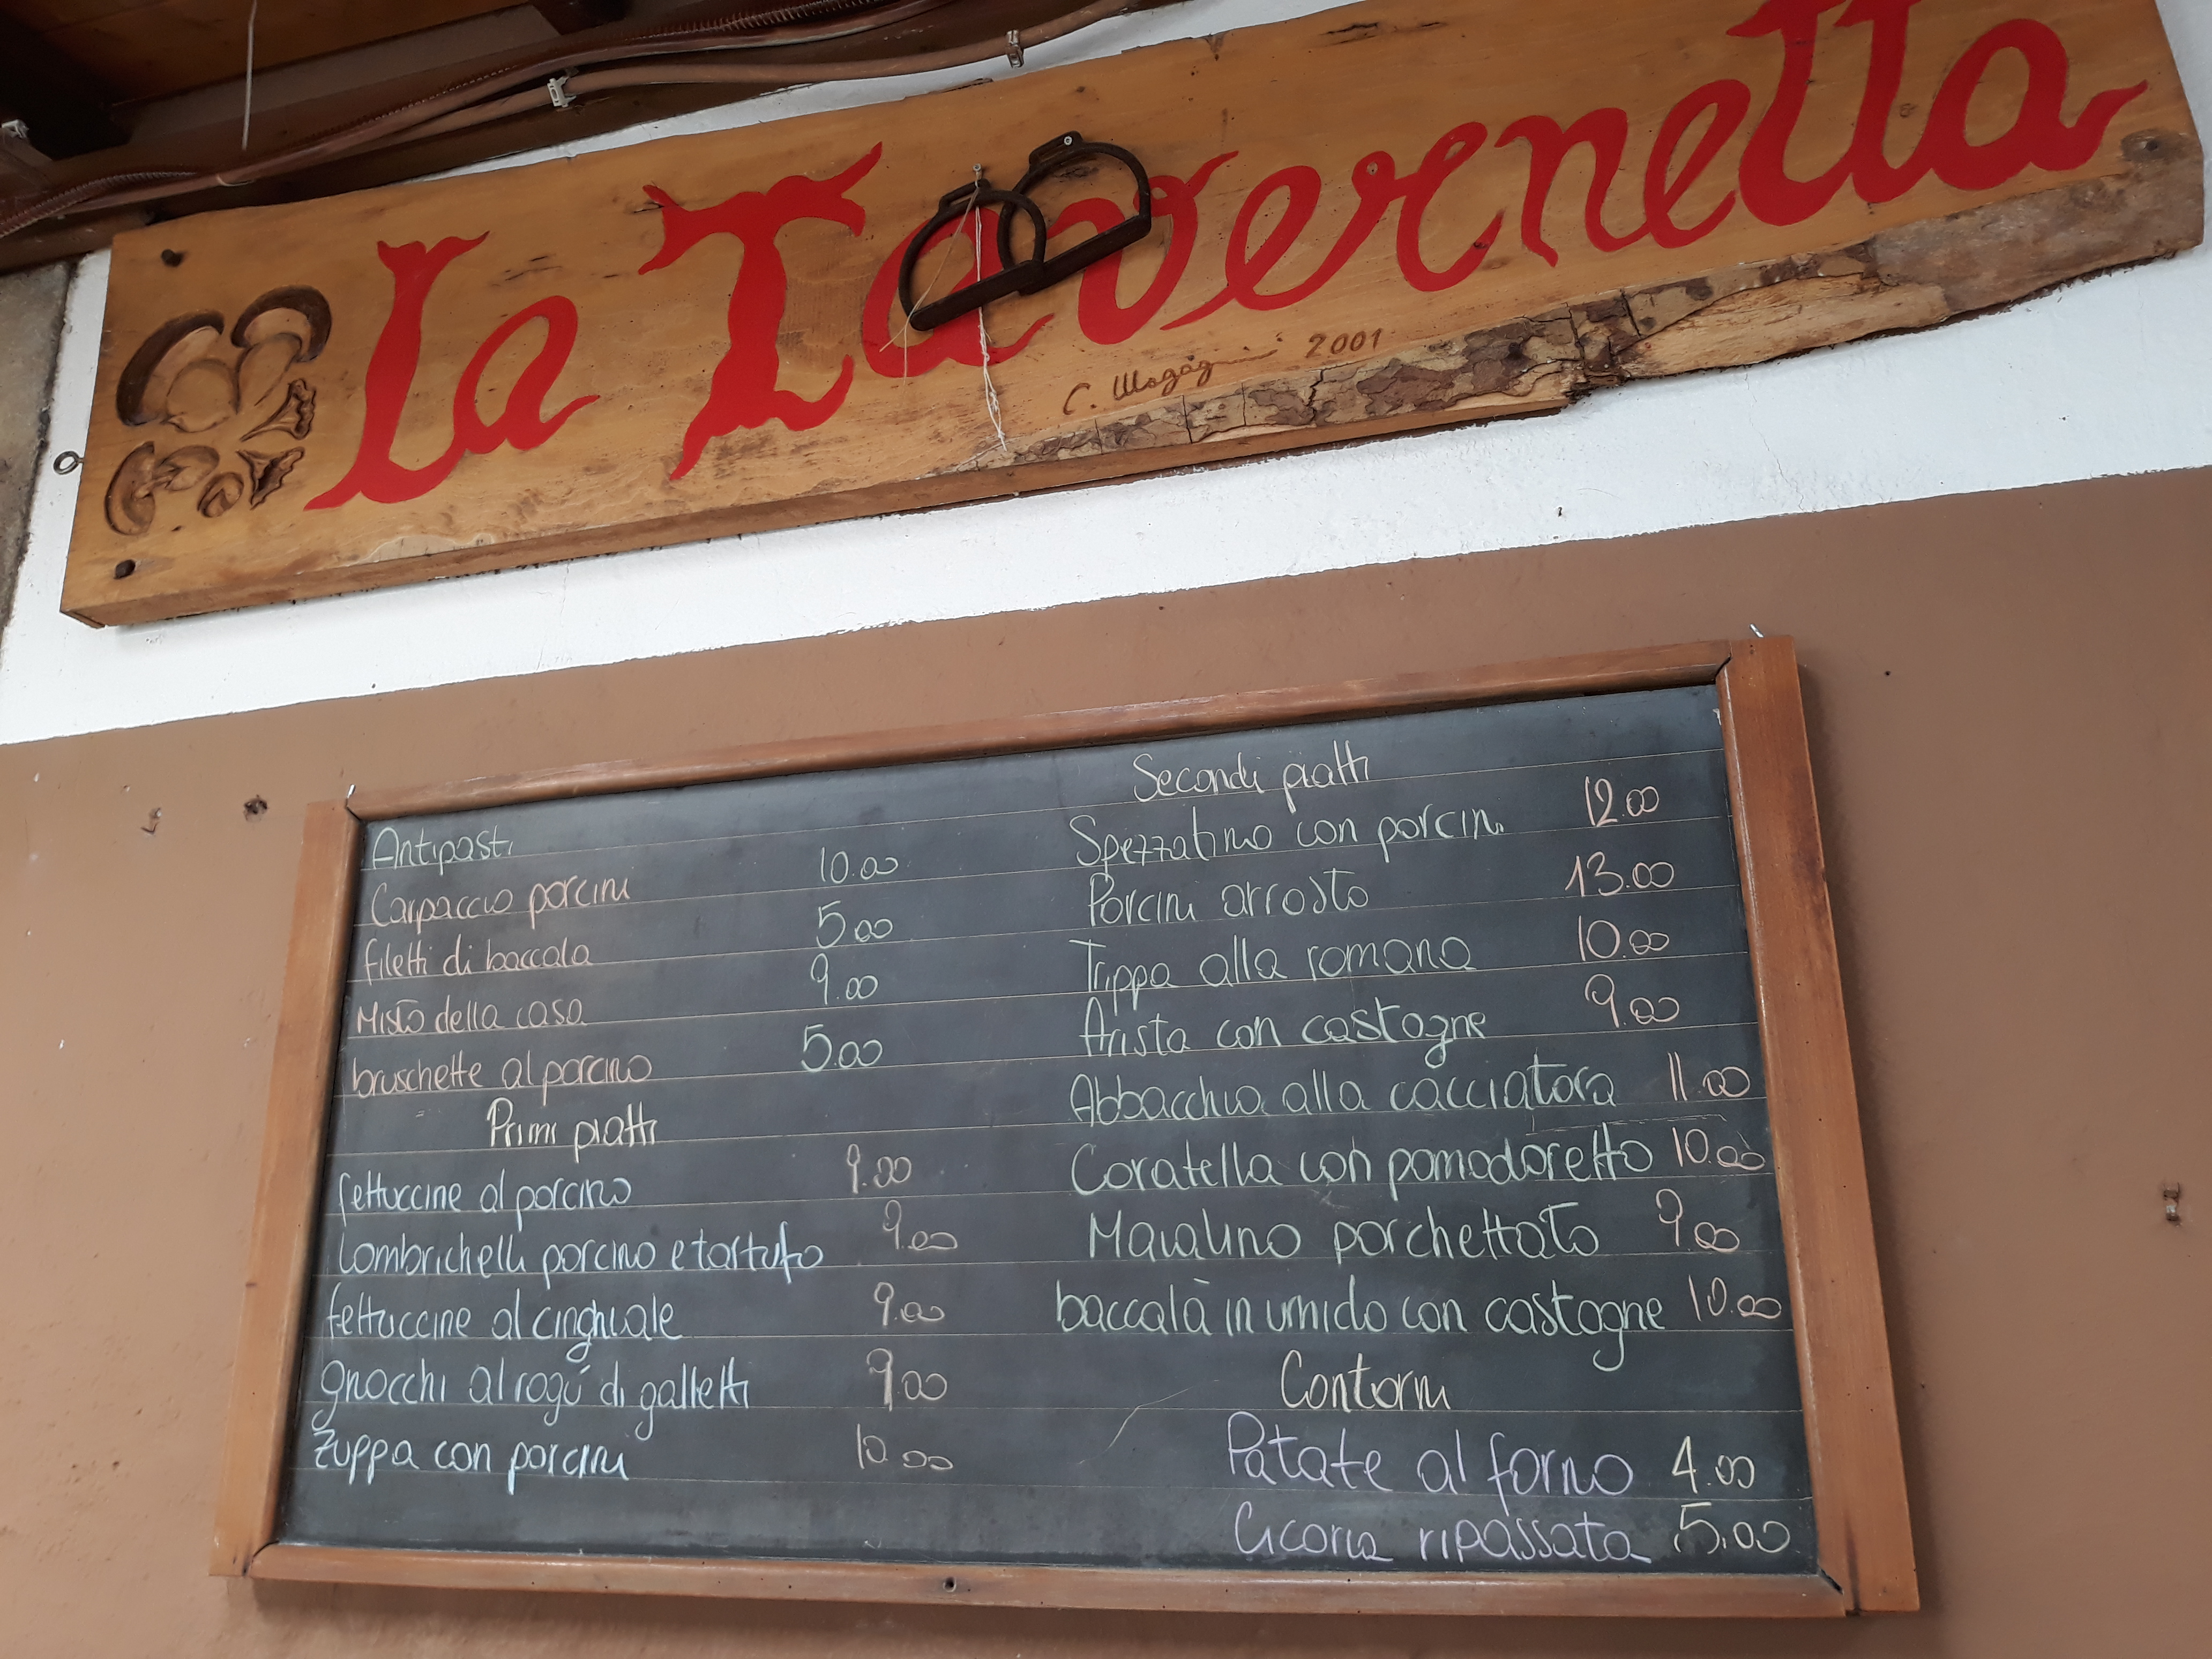 La Tavernetta
2001
Antipasti
Carpaccio porcini 10.00
filetti di baccala 5.00
Misto della casa 9.00
bruschette al porcino 5.00
Primi piatti
fettuccine al porcino 9.00
lombrichelli porcino e tartufo 9.00
fettuccine al cinghiale 9.00
gnocchi al ragú di galletti 9.00
Zuppa con porcini 10.00
Secondi piatti
Spezzatino con porcini 12.00
Porcini arrosto 13.00
Trippa alla romana 10.00
Arista con castagne 9.00
Abbacchio alla cacciatora 11.00
Coratella con pomodoretto 10.00
Maialino porchettato 9.00
baccalà in umido con castagne 10.00
Contorni
Patate al forno 4.00
Cicoria ripassata 5.00